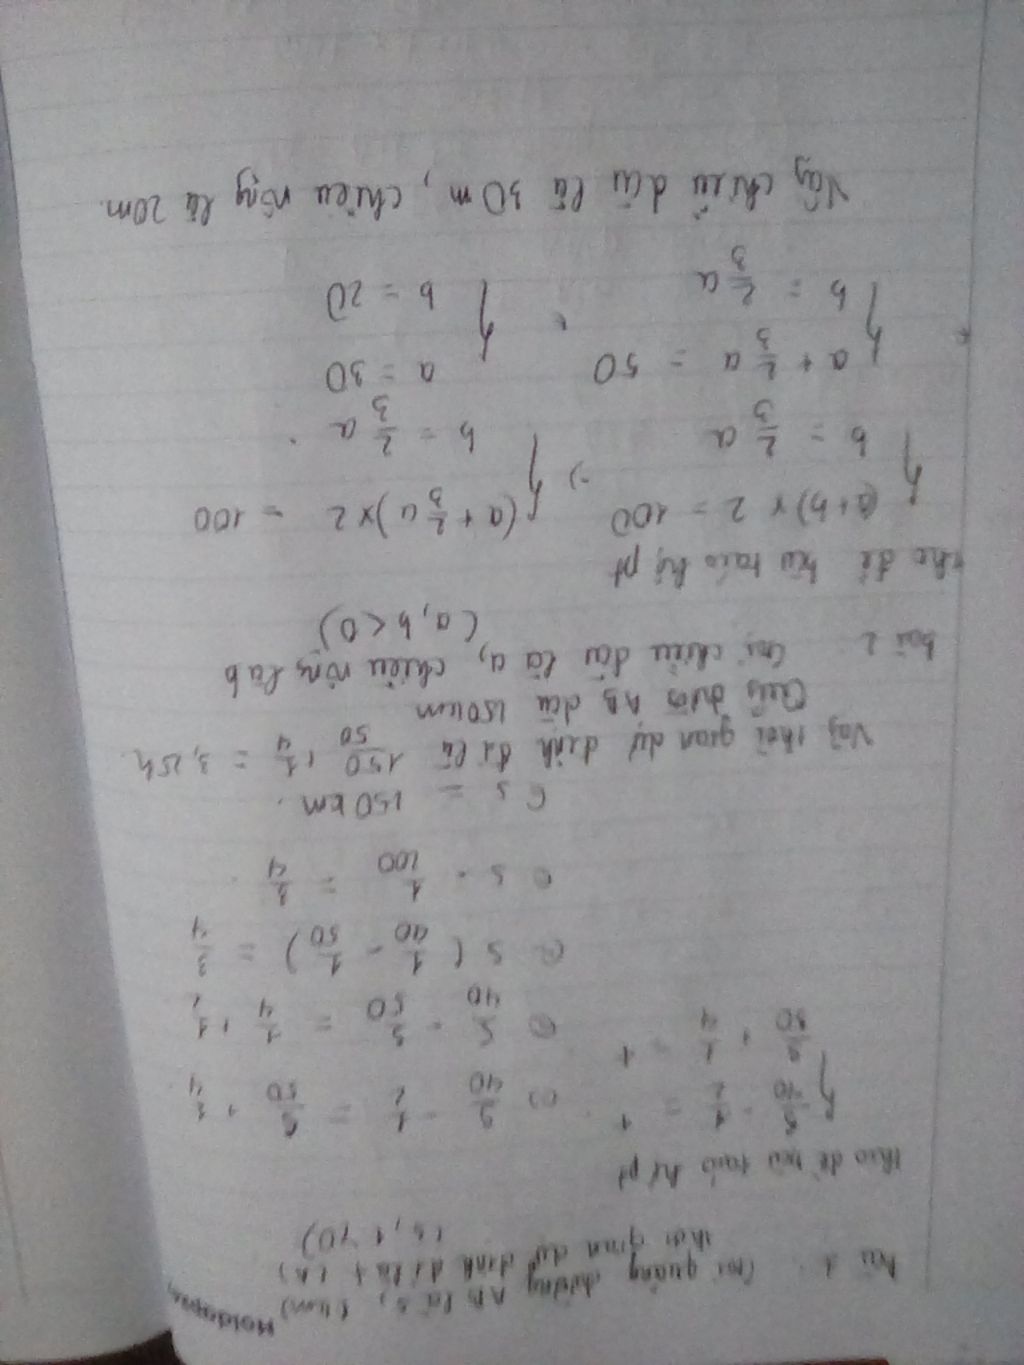 Bài 1. Gọi quãng đường AB là s, (km)
thời gian dự định đi là t (h)
(s, t > 0)
theo đề bài ta có hệ pt
{ s/40 - 1/2 = t <=> s/40 - 1/2 = s/50 + 1/4
s/50 + 1/4 = t <=> s/40 - s/50 = 1/4 + 1/2
<=> s ( 1/40 - 1/50 ) = 3/4
<=> s . 1/200 = 3/4
<=> s = 150 km.
Vậy thời gian dự định đi là 150/50 + 1/4 = 3,25h
Quãng đường AB dài 150 km
bài 2 Gọi chiều dài là a, chiều rộng là b
(a, b < 0)
theo đề bài ta có hệ pt
{ (a+b) x 2 = 100 => { (a + 2/3 a) x 2 = 100
b = 2/3 a b = 2/3 a .
{ a + 2/3 a = 50 { a = 30
b = 2/3 a b = 20
Vậy chiều dài là 30 m, chiều rộng là 20m.